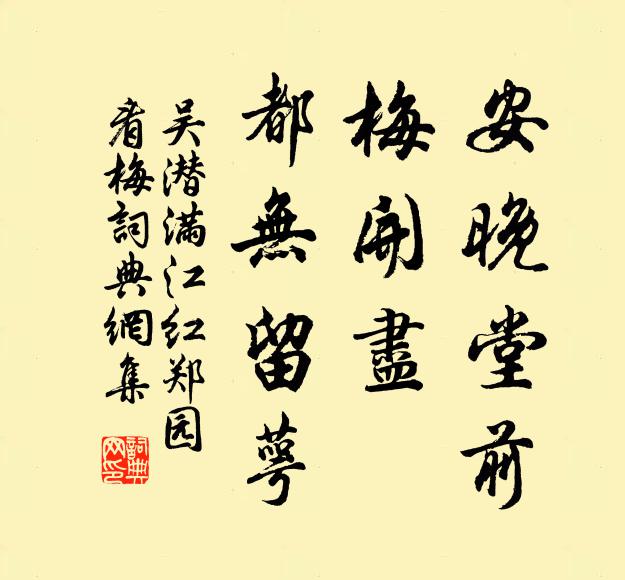 安晚堂前
梅開盡
都無留萼
吴潜满江红郑园
看梅詞典網集
詞典网印